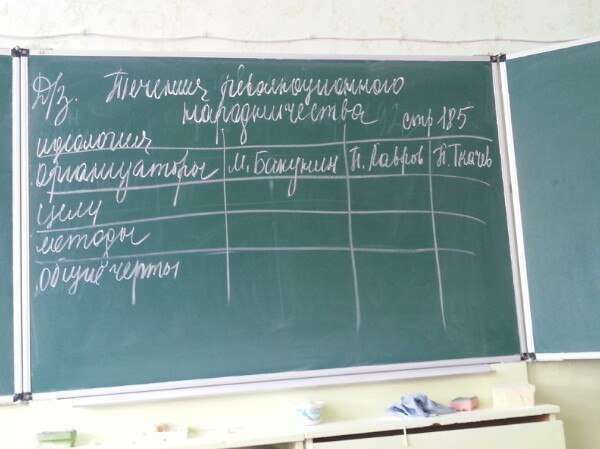 Д/з. Течения революционного
народничества стр 185
идеология
организаторы М. Бакунин П. Лавров П. Ткачёв
цели
методы
общие черты